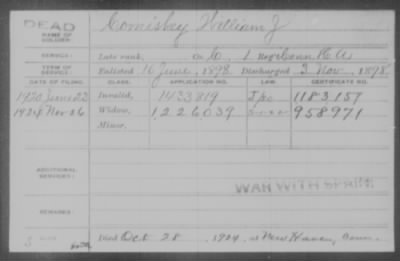 DEAD
NAME OF SOLDIER: Comisky William J
SERVICE: Late rank, Co. C, 1 Regt Conn H A
TERM OF SERVICE: Enlisted 16 June, 1898 Discharged 3 Nov, 1898
DATE OF FILING. CLASS. APPLICATION NO. LAW. CERTIFICATE NO.
1920 June 23 Invalid, 1433819 1183157
1924 Nov 26 Widow, 1226039 958971
Minor,
ADDITIONAL SERVICES:
WAR WITH SPAIN.
REMARKS:
Died Oct 28, 1924, at New Haven, Conn.